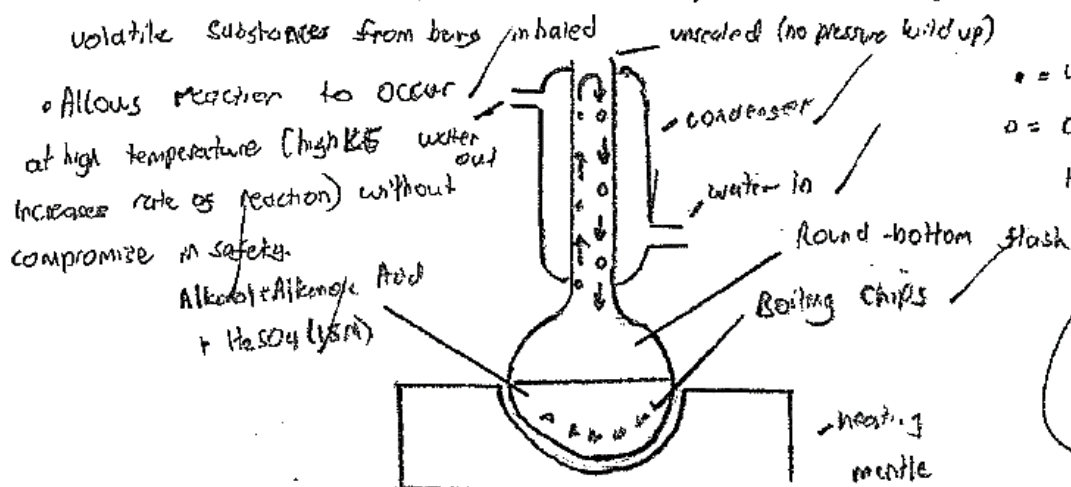 volatile substances from being inhaled
unsealed (no pressure build up)
• Allows reaction to occur
at high temperature (high KE
water out
increases rate of reaction) without
compromise in safety.
condenser
water in
Round-bottom flask
Alkanol + Alkanoic Acid
+ H₂SO₄ (18M)
Boiling Chips
heating
mantle
• =
o =